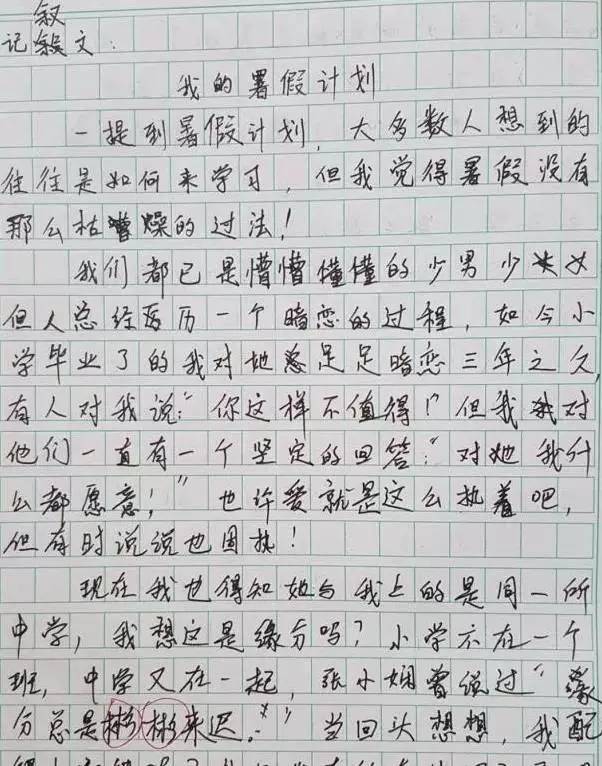 叙
记叙文:
我的暑假计划
一提到暑假计划,大多数人想到的
往往是如何来学习,但我觉得暑假没有
那么枯燥的过法!
我们都已是懵懵懂懂的少男少女
但人总经历一个暗恋的过程,如今小
学毕业了的我对她足足暗恋三年之久,
有人对我说:“你这样不值得!”但我对
他们一直有一个坚定的回答:“对她我什
么都愿意!”也许爱就是这么执着吧,
但有时说说也固执!
现在我也得知她与我上的是同一所
中学,我想这是缘分吗?小学不在一个
班,中学又在一起,张小娴曾说过“缘
分总是彬彬来迟。”当回头想想,我配